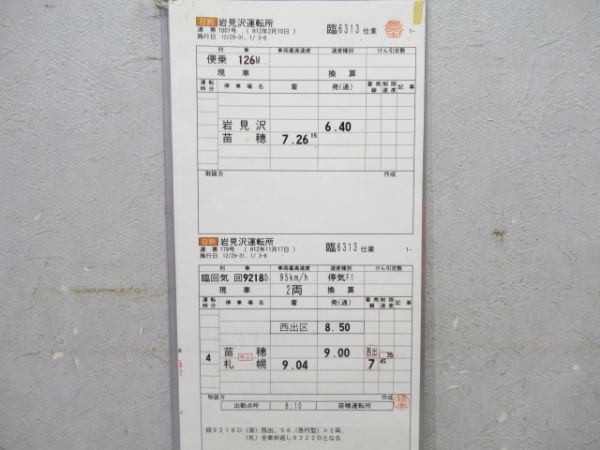 日割 岩見沢運転所 臨6313 仕業 1-
達 第 1001号 ( H12年2月10日 )
施行日 12/29-31, 1/ 3-8
列 車 車両最高速度 速度種別 けん引定数
便乗 126M
現 車 換 算
運転時分 停 車 場 名 着 発(通) 着発線 制限速度 記 事
岩 見 沢 6.40
苗 穂 7.26 15
取扱方 作成
日割 岩見沢運転所 臨6313 仕業 1-
達 第 179号 ( H12年11月17日 )
施行日 12/29-31, 1/ 3-8
列 車 車両最高速度 速度種別 けん引定数
臨回気 回9218D 95km/h 停気F1
現 車 2両 換 算
運転時分 停 車 場 名 着 発(通) 着発線 制限速度 記 事
西出区 8.50
苗 穂 9.00 西出 35
4 札 幌 9.04 7 45
取扱方 作成
出勤点呼 8:10 苗穂運転所
回9218D (苗) 西出、56 (急行型) ×2両、
(札) 全車折返し9222Dとなる